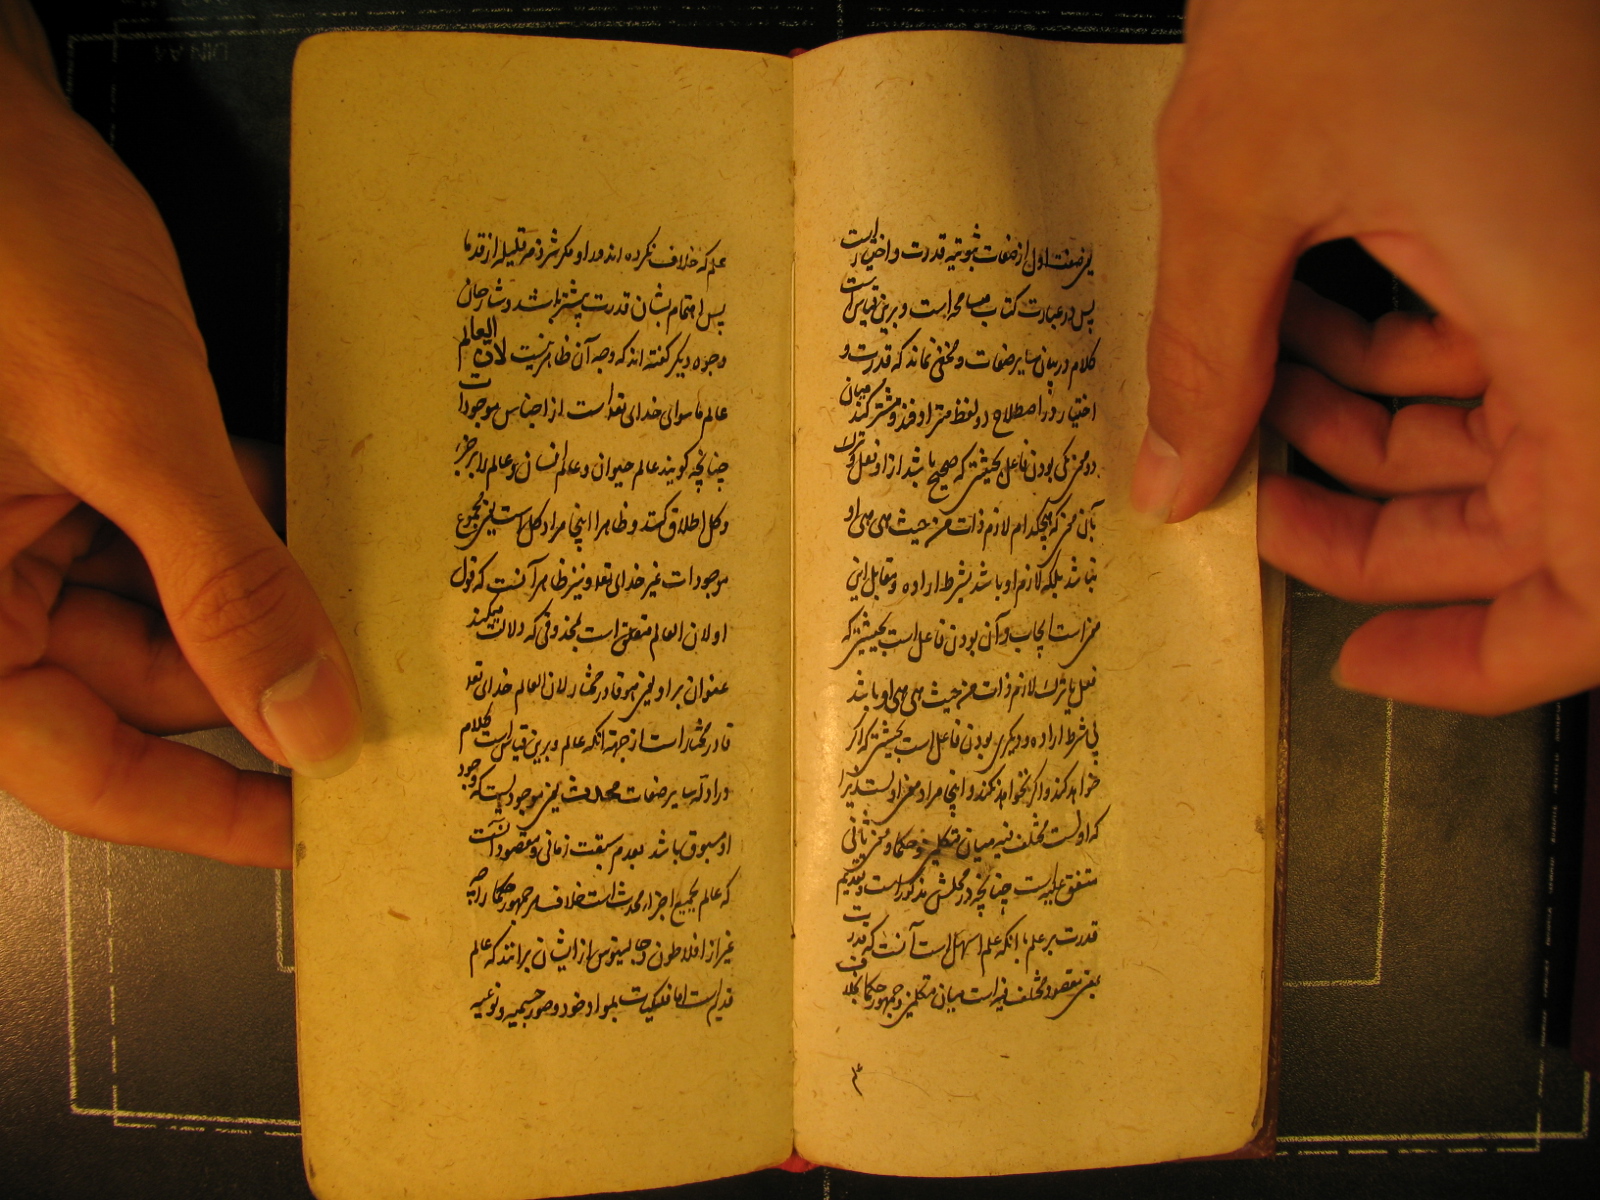 یعنی صفت اول از صفات ثبوتیه قدرت و اختیار است
پس در عبارت کتاب مسامحه است و برین قیاس است
کلام در بیان سایر صفات و مخفی نماند که قدرت و
اختیار در اصطلاح دو لفظ مترادفند و مشترکند میان
دو معنی یکی بودن فاعل بحیثیتی که صحیح باشد از او فعل و ترک
بآن معنی که هیچکدام لازم ذات من حیث هی هی او
نباشد بلکه لازم او باشد بشرط اراده و مقابل این
معنی است ایجاب و آن بودن فاعل است بحیثیتی که
فعل یا ترک لازم ذات من حیث هی هی او باشد
بی شرط اراده و دیگری بودن فاعل است بحیثیتی که اگر
خواهد کند و اگر نخواهد نکند و اینجا مراد معنی اولست زیرا
که اولست مختلف فیه میان متکلمین و حکما و معنی ثانی
متفق علیه است چنانچه در محلش مذکور است و تقدیم
قدرت بر علم با آنکه علم اسهل است آنست که قدرت
بمعنی مقصود مختلف فیه است میان متکلمین و جمهور حکما بخلاف
علم
علم که خلاف نکرده اند در او مگر شرذمه قلیله از قدما
پس اهتمام بشان قدرت بیشتر باشد و شارحان
وجوه دیگر گفته اند که وجه آن ظاهر نیست لان العالم
عالم ما سوای خدای تعالی است از اجناس موجودات
چنانچه گویند عالم حیوان و عالم انسان و عالم را بر جزء
و کل اطلاق کنند و ظاهرا اینجا مراد کل است یعنی مجموع
موجودات غیر خدای تعالی و نیز ظاهر آنست که قول
او لان العالم متعلق است بمحذوفی که دلالت میکند
عنوان بر او یعنی هو قادر مختار لان العالم خدای تعالی
قادر مختار است از جهة آنکه عالم و برین قیاس است کلام
در ادله سایر صفات محدث یعنی موجودیست که وجود
او مسبوق باشد بعدم سبقت زمانی و مقصود آنست
که عالم بجمیع اجزاء محدث است خلافا لجمهور حکما را چه
غیر از افلاطون و جالینوس از ایشان برانند که عالم
قدیم است اما فلکیات بمواد خود و صور جسمیه و نوعیه